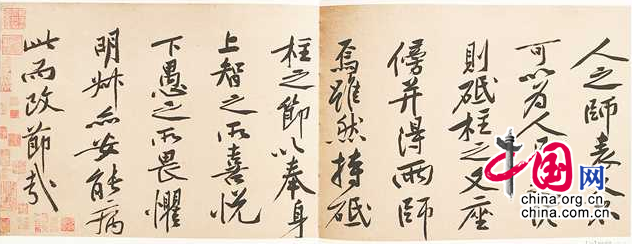 人之師表又不
可以為人
則砥柱之文座
傍并得兩師
焉雖然持砥
柱之節以奉身
上智之所喜悅
下愚之所畏懼
明叔亦安能病
此而改節哉
中国网
china.org.cn
china.com.cn